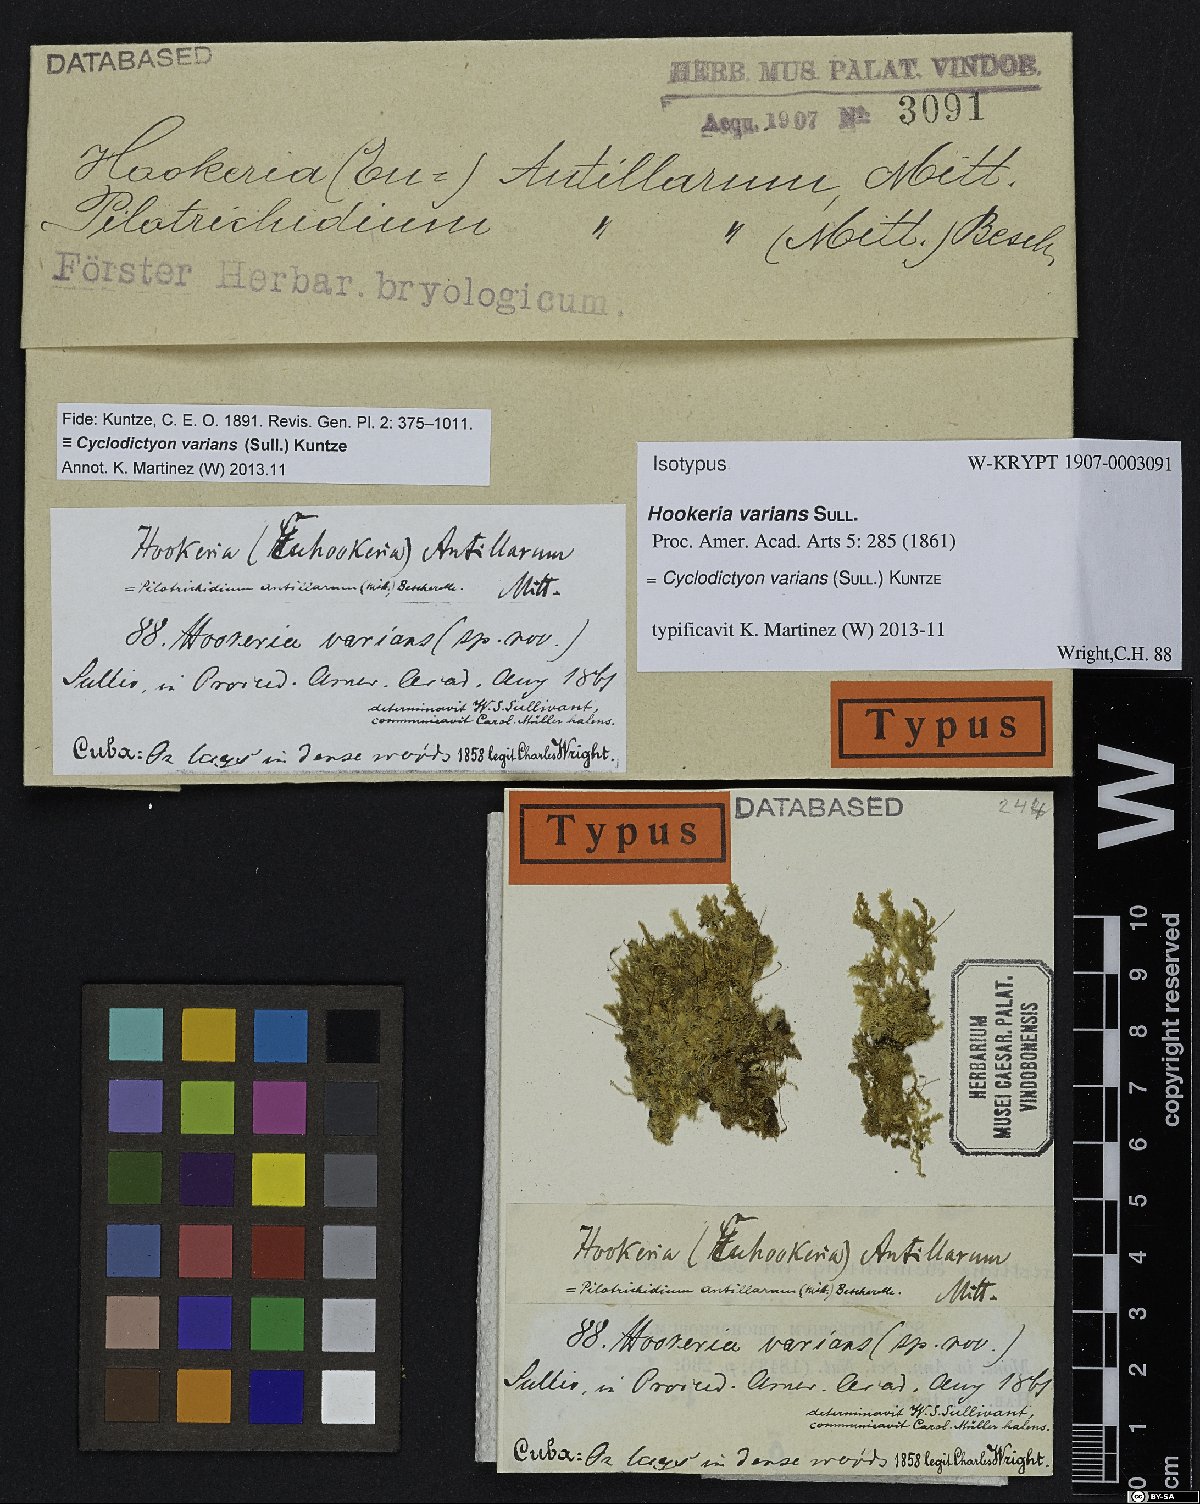 DATABASED
HERB. MUS. PALAT. VINDOB.
Acqu. 1907 № 3091
Hookeria (Eu=) Antillarum, Mitt.
Pilotrichidium " " (Mitt.) Besch.
Förster Herbar. bryologicum.
Fide: Kuntze, C. E. O. 1891. Revis. Gen. Pl. 2: 375–1011.
≡ Cyclodictyon varians (Sull.) Kuntze
Annot. K. Martinez (W) 2013.11
Isotypus W-KRYPT 1907-0003091
Hookeria varians SULL.
Proc. Amer. Acad. Arts 5: 285 (1861)
= Cyclodictyon varians (SULL.) KUNTZE
typificavit K. Martinez (W) 2013-11
Wright,C.H. 88
Hookeria (Euhookeria) Antillarum
= Pilotrichidium antillarum (Mitt.) Bescherelle. Mitt.
88. Hookeria varians (sp. nov.)
Sulliv. in Proceed. Amer. Acad. Aug 1861
determinavit W. S. Sullivant,
communicavit Carol. Müller halens.
Cuba: On logs in dense woods 1858 legit Charles Wright.
Typus
Typus
DATABASED
244
HERBARIUM
MUSEI CAESAR. PALAT.
VINDOBONENSIS
Hookeria (Euhookeria) Antillarum
= Pilotrichidium antillarum (Mitt.) Bescherelle. Mitt.
88. Hookeria varians (sp. nov.)
Sulliv. in Proceed. Amer. Acad. Aug 1861
determinavit W. S. Sullivant,
communicavit Carol. Müller halens.
Cuba: On logs in dense woods 1858 legit Charles Wright.
W
10
9
8
7
6
5
4
3
2
1
0
cm
copyright reserved
CC BY-SA